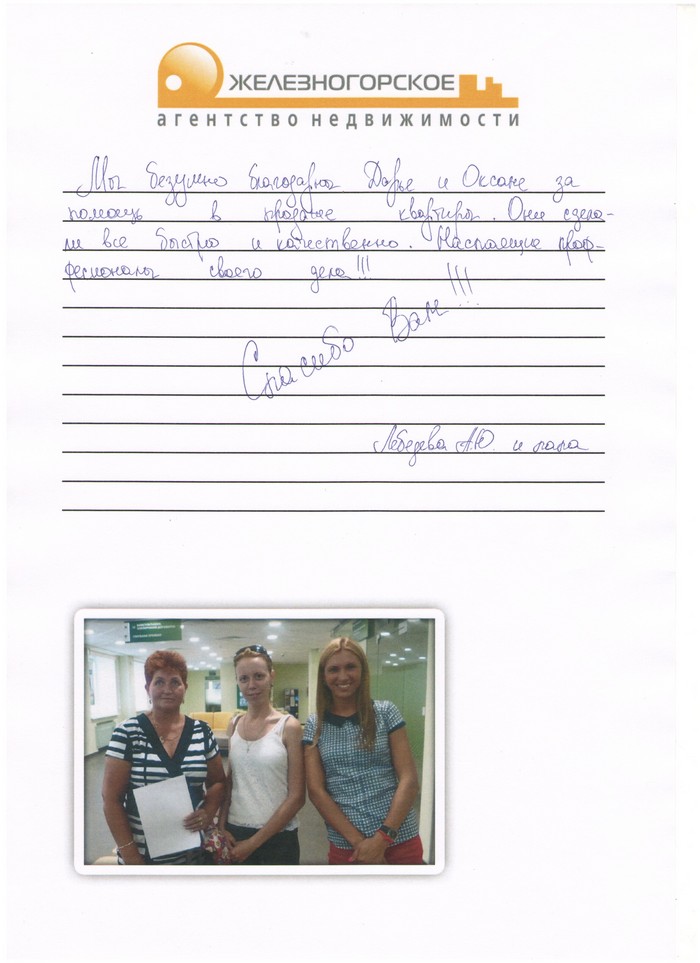 ЖЕЛЕЗНОГОРСКОЕ
агентство недвижимости
Мы безумно благодарны Дарье и Оксане за
помощь в продаже квартиры. Они сдела-
ли все быстро и качественно. Настоящие проф-
фесионалы своего дела!!!
Спасибо Вам!!!
Лебедева А.Ю. и папа